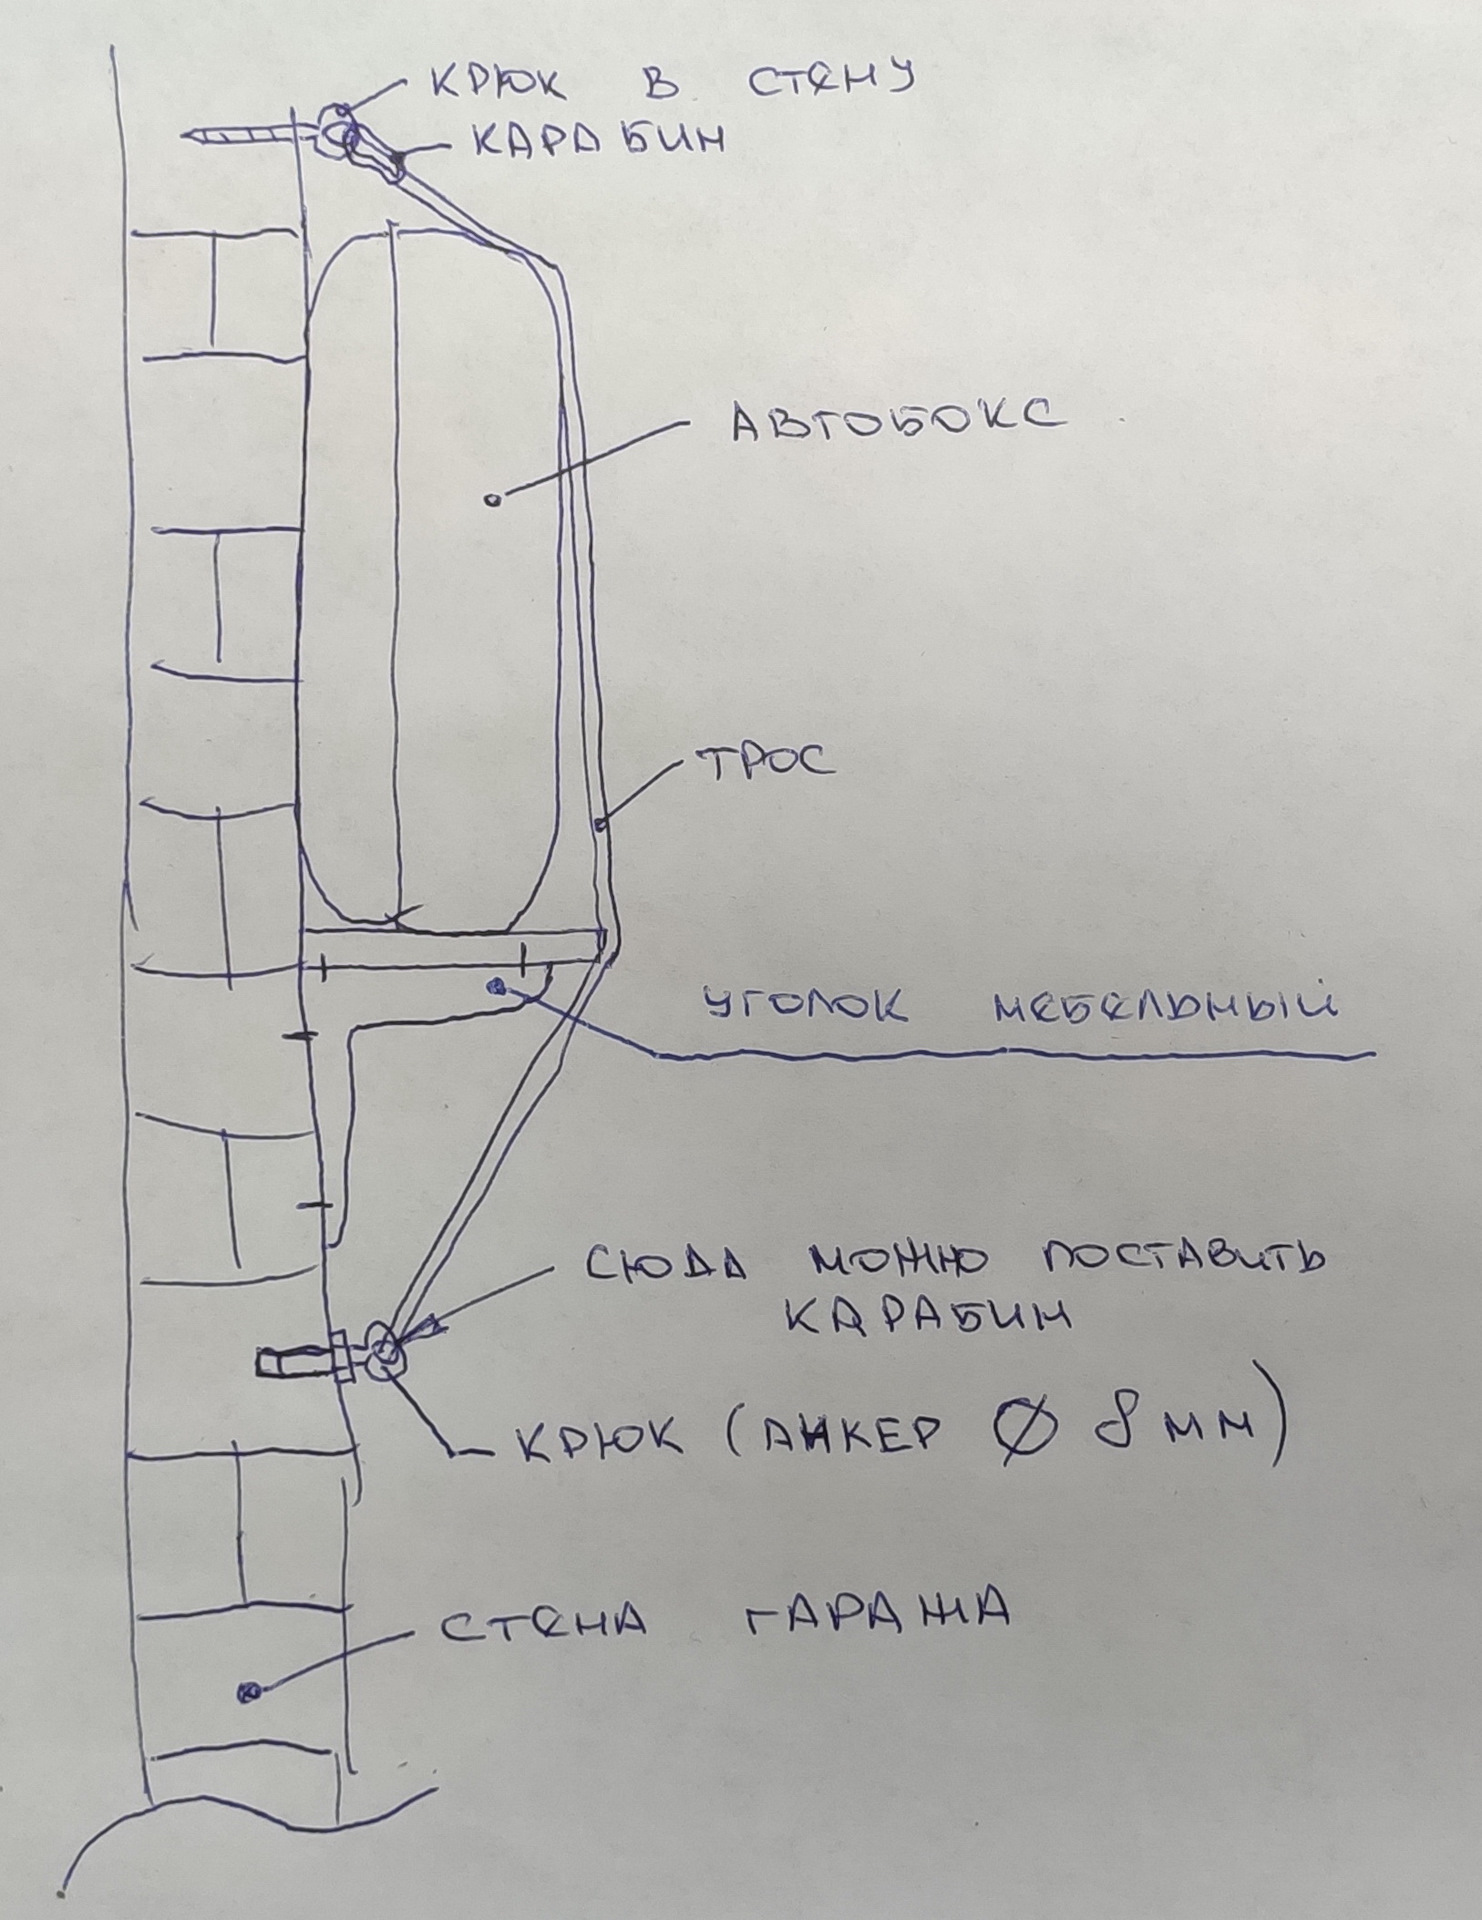 КРЮК В СТЕНУ
КАРАБИН
АВТОБОКС
ТРОС
УГОЛОК МЕБЕЛЬНЫЙ
СЮДА МОЖНО ПОСТАВИТЬ
КАРАБИН
КРЮК (АНКЕР Ø 8 мм)
СТЕНА ГАРАЖА